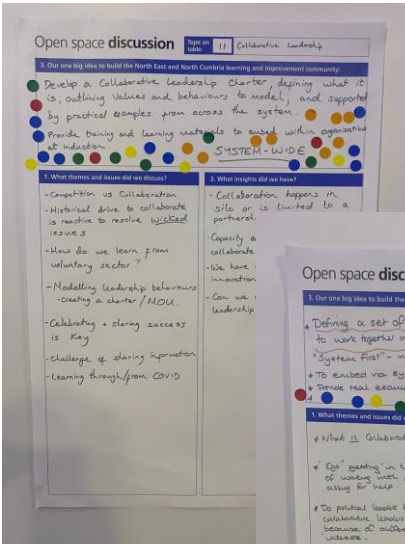 Open space discussion
Topic on table:
11 Collaborative Leadership
3. Our one big idea to build the North East and North Cumbria learning and improvement community:
Develop a Collaborative Leadership Charter, defining what it
is, outlining values and behaviours to model, and supported
by practical examples from across the system.
Provide training and learning materials to embed within organisations
at induction.
SYSTEM-WIDE
1. What themes and issues did we discuss?
- Competition vs Collaboration
- Historical drive to collaborate
is reactive to resolve wicked
issues
- How do we learn from
voluntary sector?
- Modelling leadership behaviours
- creating a charter / MOU.
- Celebrating + sharing success
is key
- Challenge of sharing information
- Learning through/from COVID
2. What insights did we have?
- Collaboration happens in
silo or is limited to a
- Capacity
collaborate
- We have
innovation
- Can we
leadership
Open space disc
3. Our one big idea to build the
Defining a set of
to work together
"System First" -
* To embed via
* Provide real
1. What themes and issues did
* What is
* "Ego" getting in
of working with
asking for help.
* Do political leaders
collaborative
because of